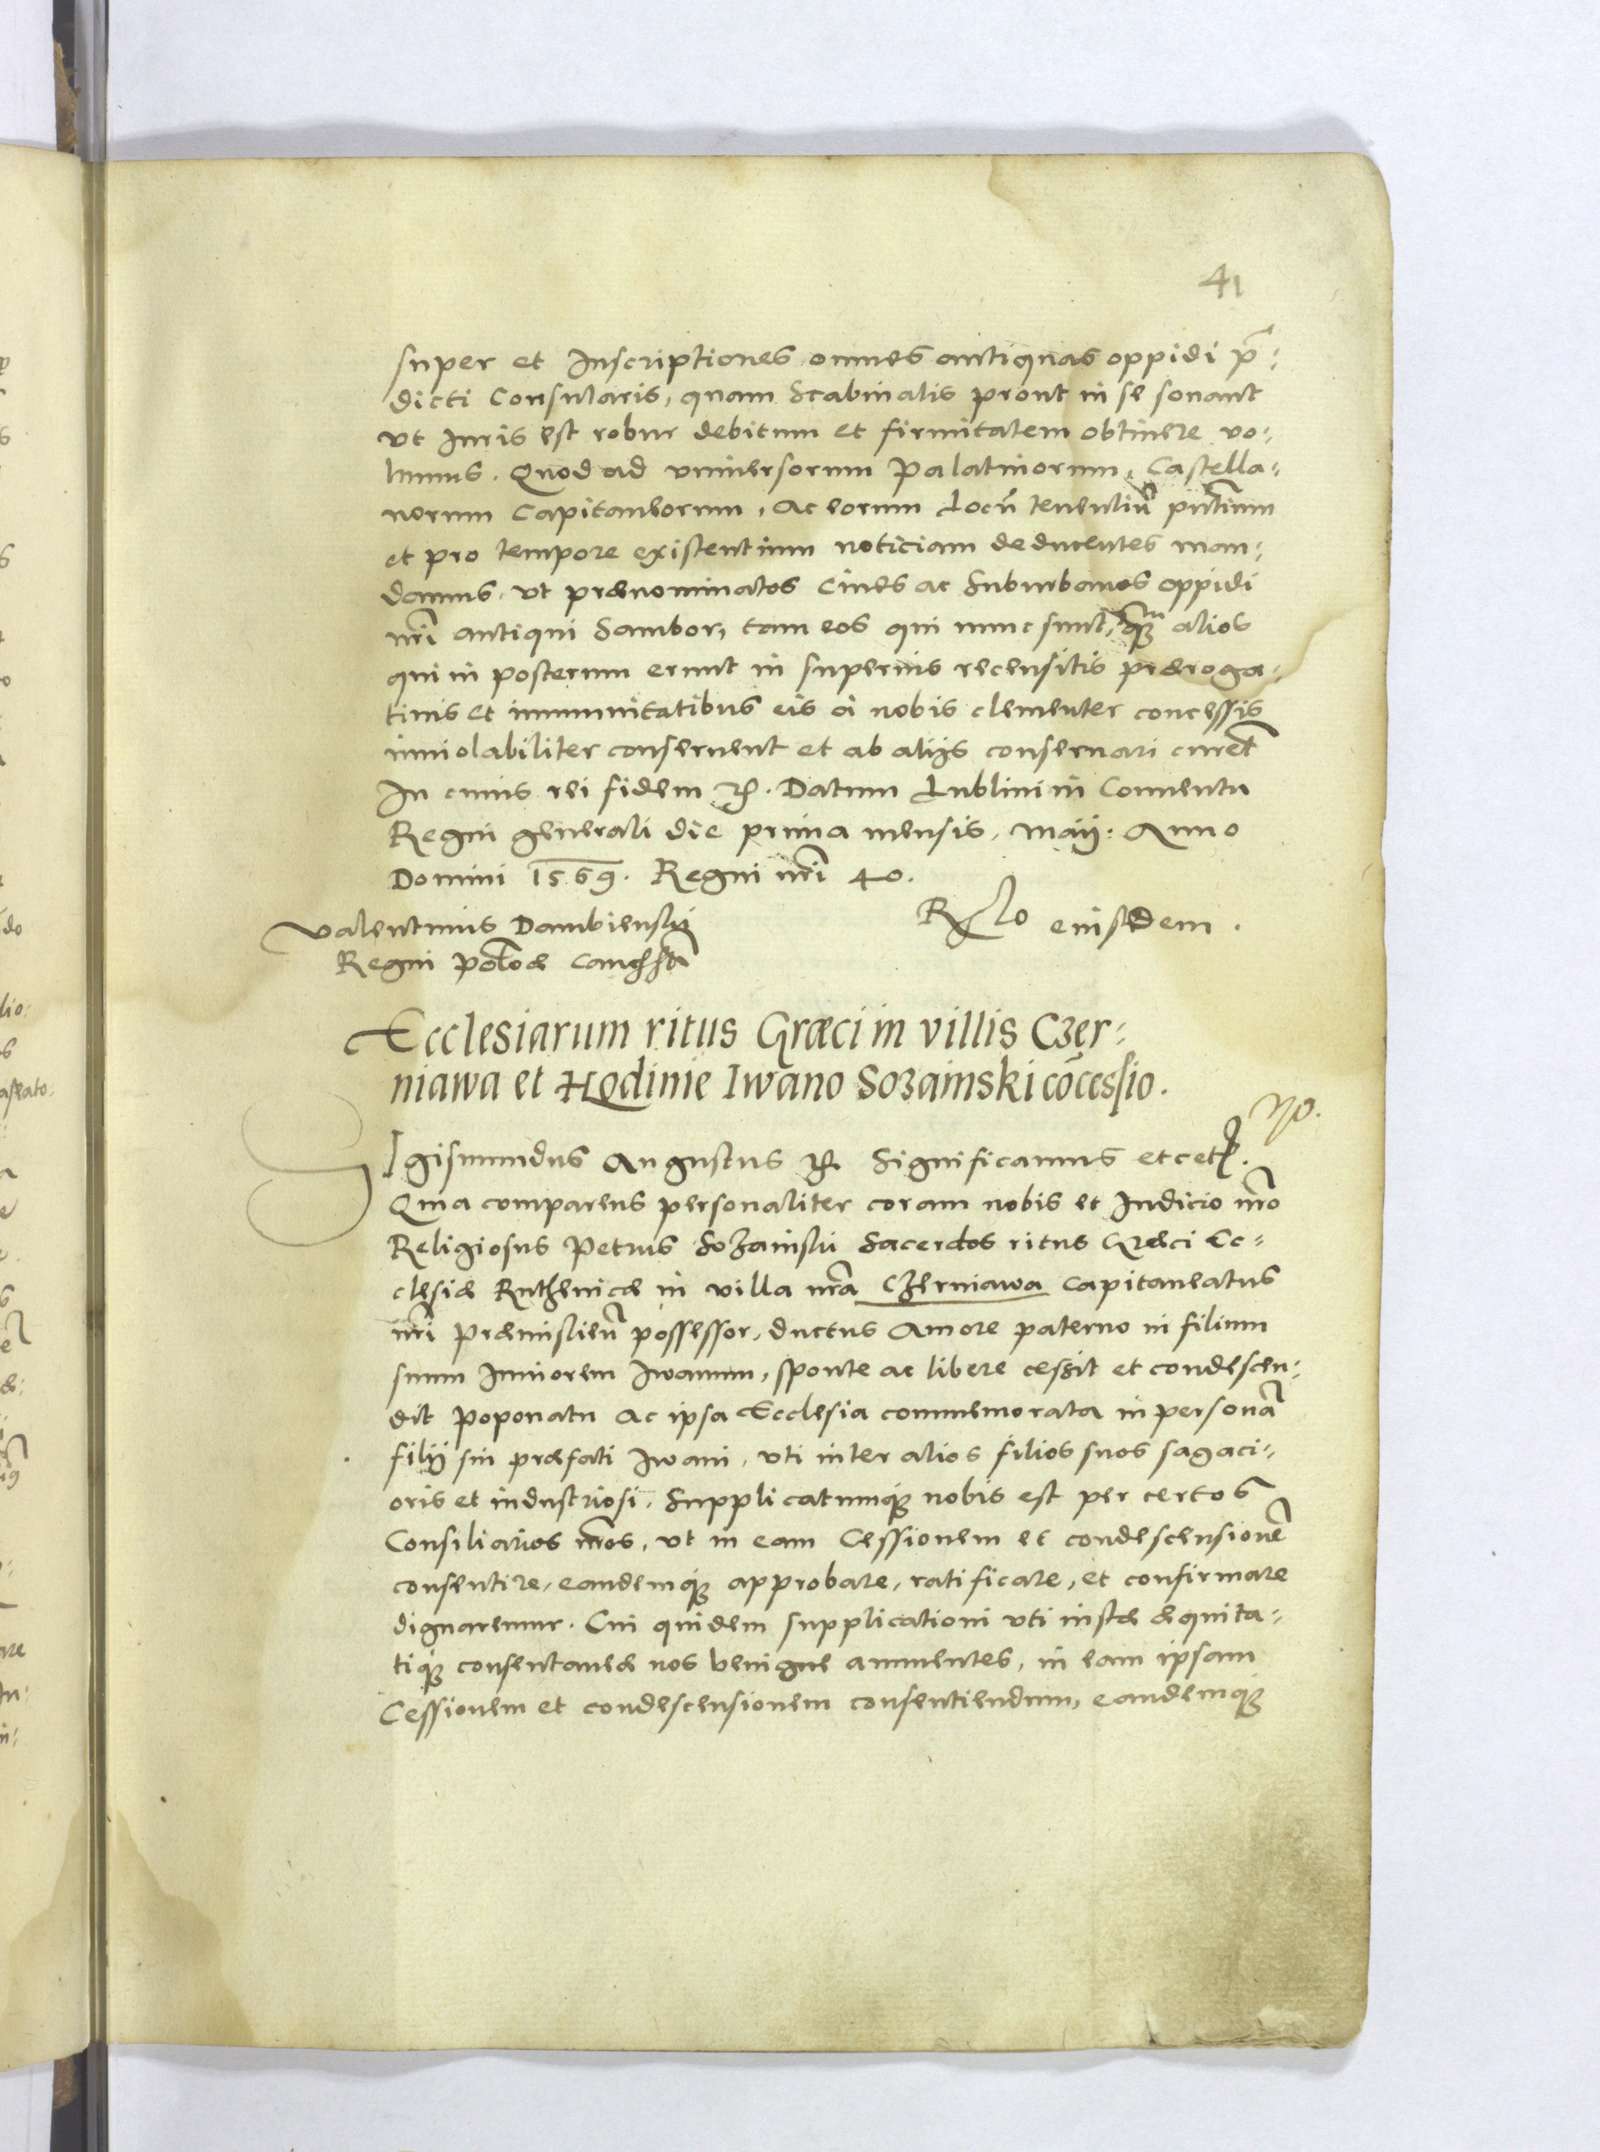 41
super et Inscriptiones omnes antiquas oppidi p̄:
dicti Consularis, quam Scabinalis prout in se sonant
vt Iuris est robur debitum et firmitatem obtinere vo:
lumus. Quod ad vniuersorum Palatinorum, Castella:
norum Capitaneorum, Ac eorum Locūtenentiū pn̄tium
et pro tempore existentium noticiam deducentes man:
damus, vt prænominatos Ciues ac Suburbanos oppidi
nr̄i antiqui Sambor, tam eos qui nunc sunt, quam alios
qui in posterum erunt in superius recensitis præroga:
tiuis et immunitatibus eis à nobis clementer concessis
inuiolabiliter conseruent et ab alijs conseruari curēt
In cuius rei fidem etc. Datum Lublini in Conuentu
Regni generali die prima mensis, Maij: Anno
Domini 1569. Regni nr̄i 40.
Valentinus Dambienskij
Regni Polōæ
Rlo eiusdem.
Ecclesiarum ritus Græci in villis Czer:
niawa et Hodinie Iwano Sozainski cōcessio.
No.
SIgismundus Augustus etc. Significamus etcet.
Quia comparens personaliter coram nobis et Iudicio nr̄o
Religiosus Petrus Sozainski Sacerdos ritus Græci Ec:
clesiæ Ruthenicæ in villa nr̄a Czerniawa Capitaneatus
nr̄i Præmislieñ possessor, ductus Amore paterno in filium
suum Iuniorem Iwanum, sponte ac libere cessit et condescen:
dit Poponatu Ac ipsa Ecclesia commemorata in personā
filij sui præfati Iwani, vti inter alios filios suos sagaci:
oris et industriosi. Supplicatumq́ue nobis est per certos
Consiliarios nr̄os, vt in eam Cessionem et condescensionē
consentire, eandemq́ue approbare, ratificare, et confirmare
dignaremur. Cui quidem supplicationi vti iustæ æquita:
tiq́ue consentaneæ nos benigne annuentes, in eam ipsam
Cessionem et condescensionem consentiendum, eandemq́ue